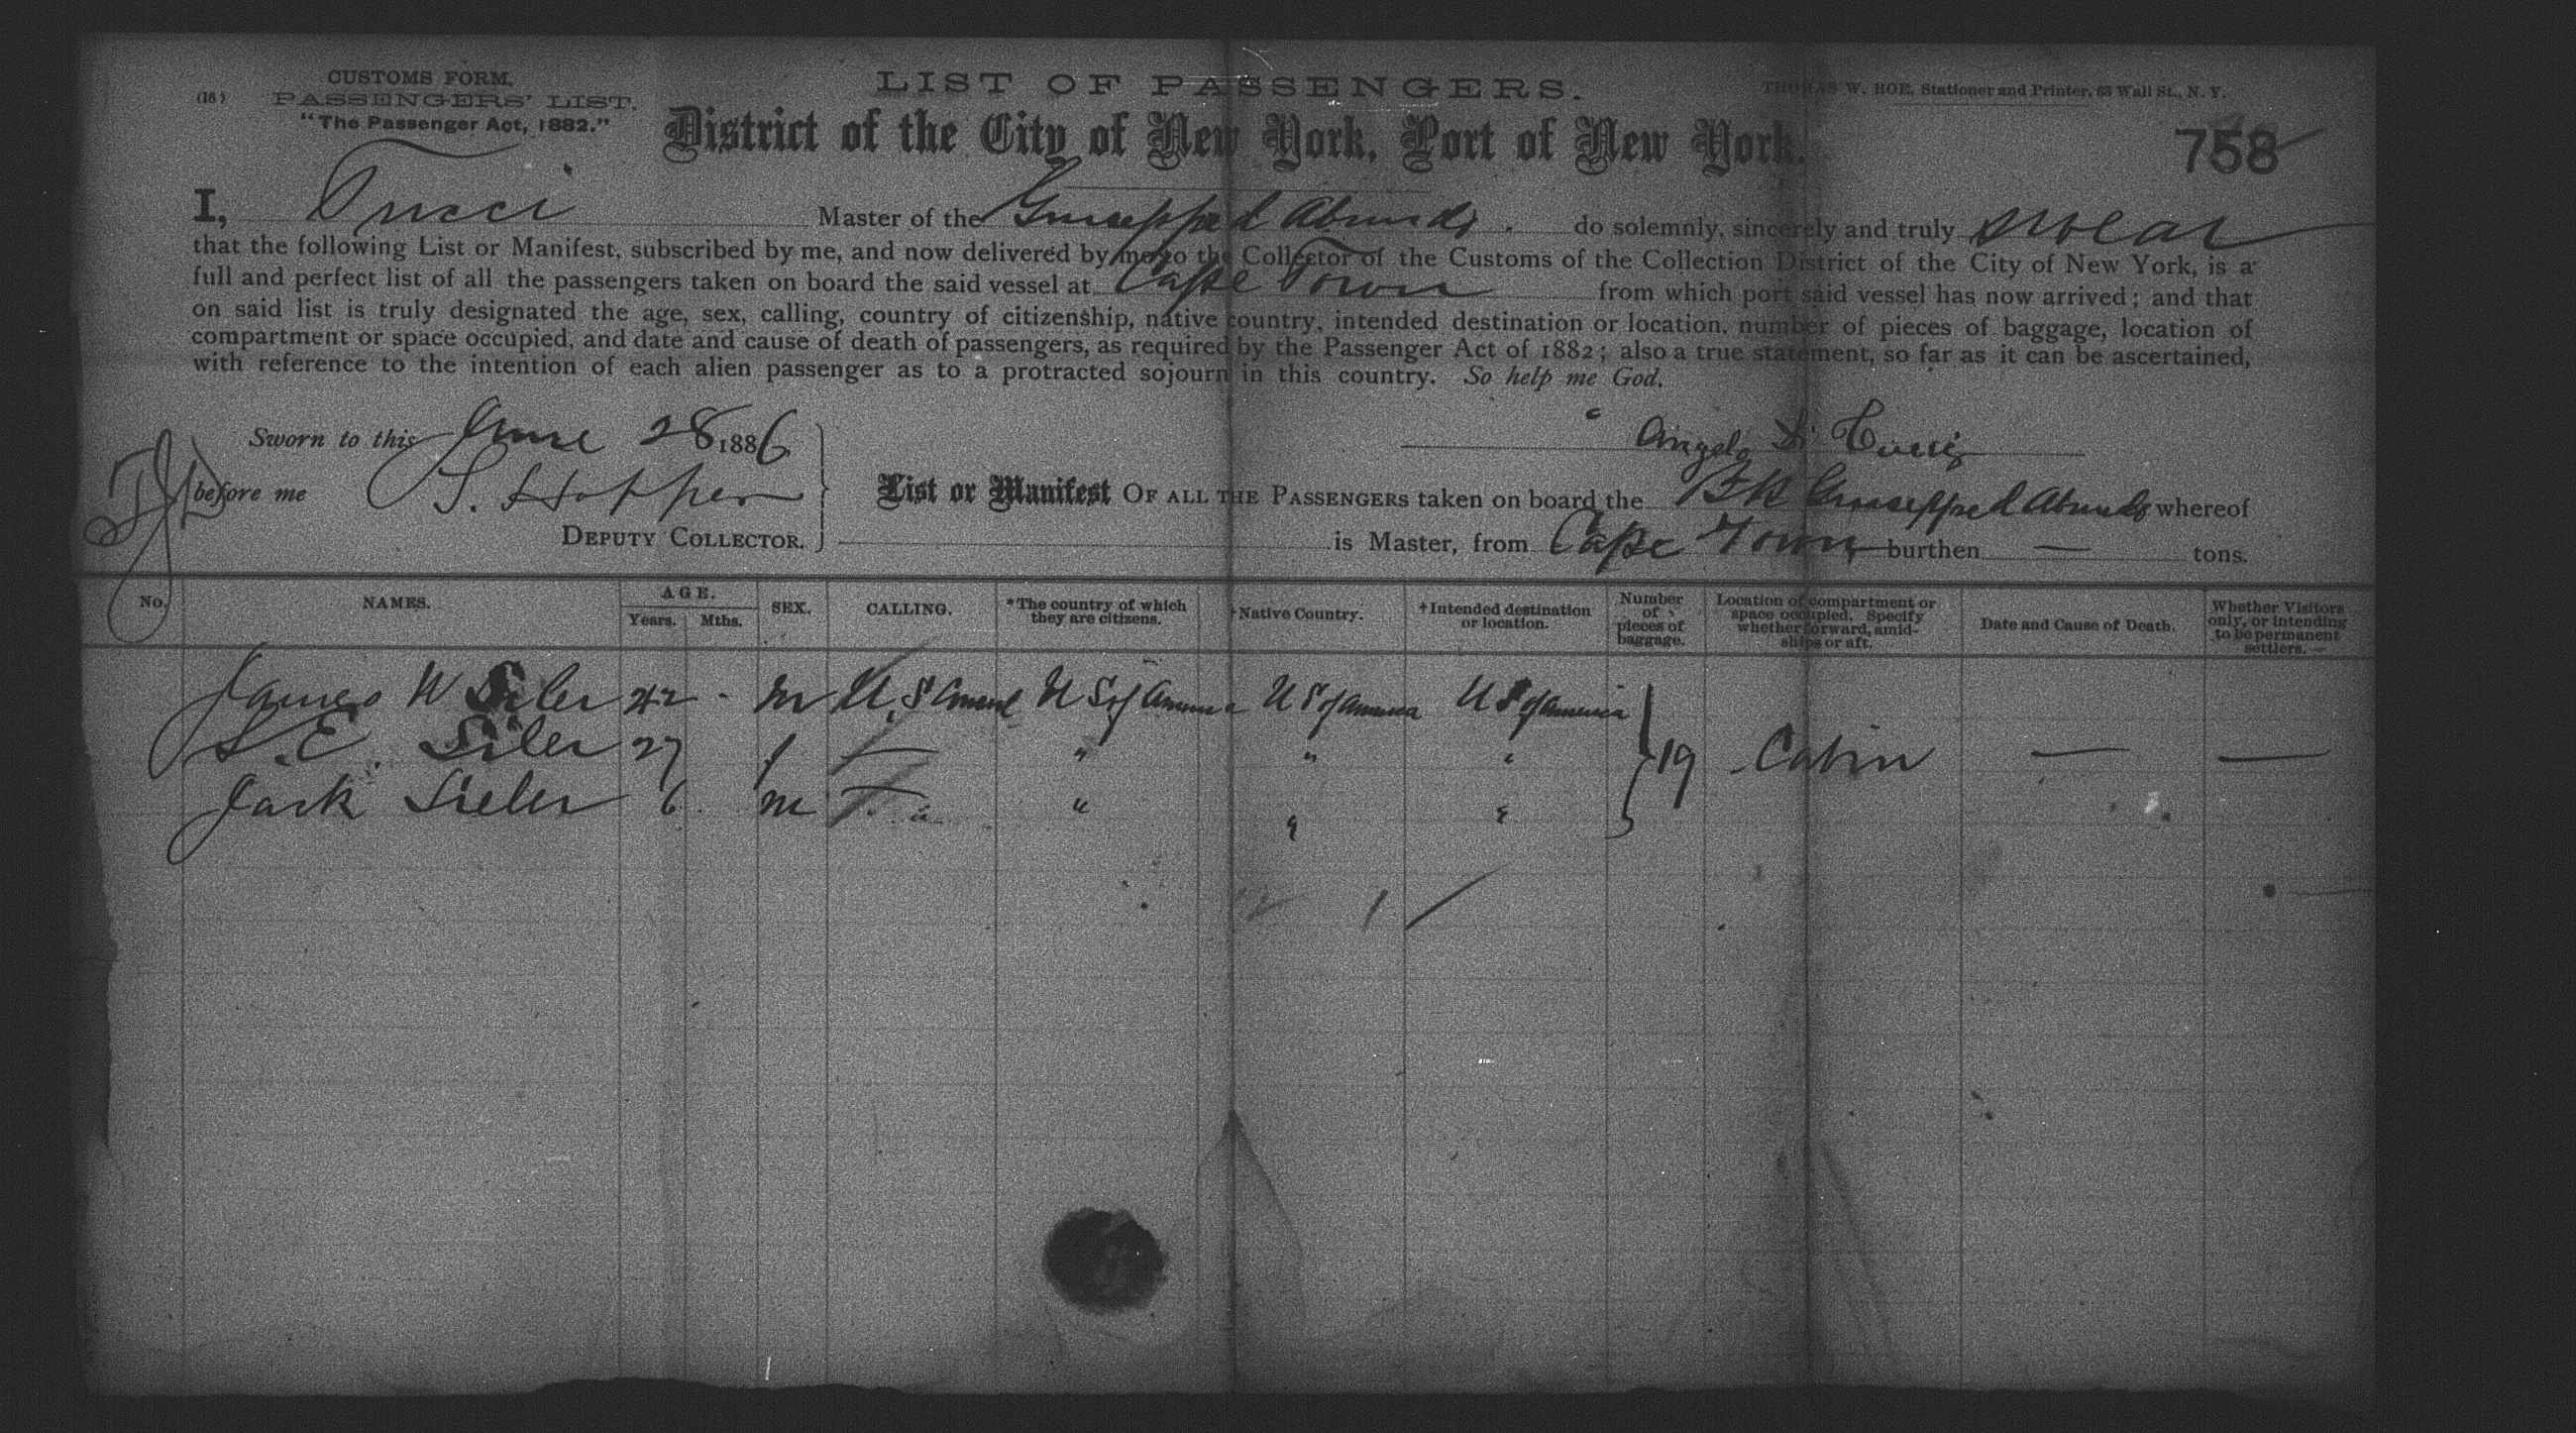 CUSTOMS FORM.
(18)
PASSENGERS' LIST.
"The Passenger Act, 1882."
LIST OF PASSENGERS.
THOMAS W. ROE, Stationer and Printer, 63 Wall St., N. Y.
District of the City of New York, Port of New York.
758
I, Tucci Master of the Guiseppe d Abundo. do solemnly, sincerely and truly swear
that the following List or Manifest, subscribed by me, and now delivered by me to the Collector of the Customs of the Collection District of the City of New York, is a
full and perfect list of all the passengers taken on board the said vessel at Cape Town from which port said vessel has now arrived; and that
on said list is truly designated the age, sex, calling, country of citizenship, native country, intended destination or location, number of pieces of baggage, location of
compartment or space occupied, and date and cause of death of passengers, as required by the Passenger Act of 1882; also a true statement, so far as it can be ascertained,
with reference to the intention of each alien passenger as to a protracted sojourn in this country. So help me God.
Sworn to this June 28 1886
Angelo
before me S. Hopper
DEPUTY COLLECTOR.
List or Manifest OF ALL THE PASSENGERS taken on board the Bk Guiseppe d Abundo whereof
is Master, from Cape Town burthen — tons.
No. NAMES. AGE. Years. Mths. SEX. CALLING. *The country of which they are citizens. †Native Country. †Intended destination or location. Number of pieces of baggage. Location of compartment or space occupied. Specify whether forward, amidships or aft. Date and Cause of Death. Whether Visitors only, or intending to be permanent settlers.
James W Siler 42 - m U.S U S of America U S of America U S of America
S. E. Siler 27 f — " " " 19 Cabin — —
Jack Sieler 6 m " " " "